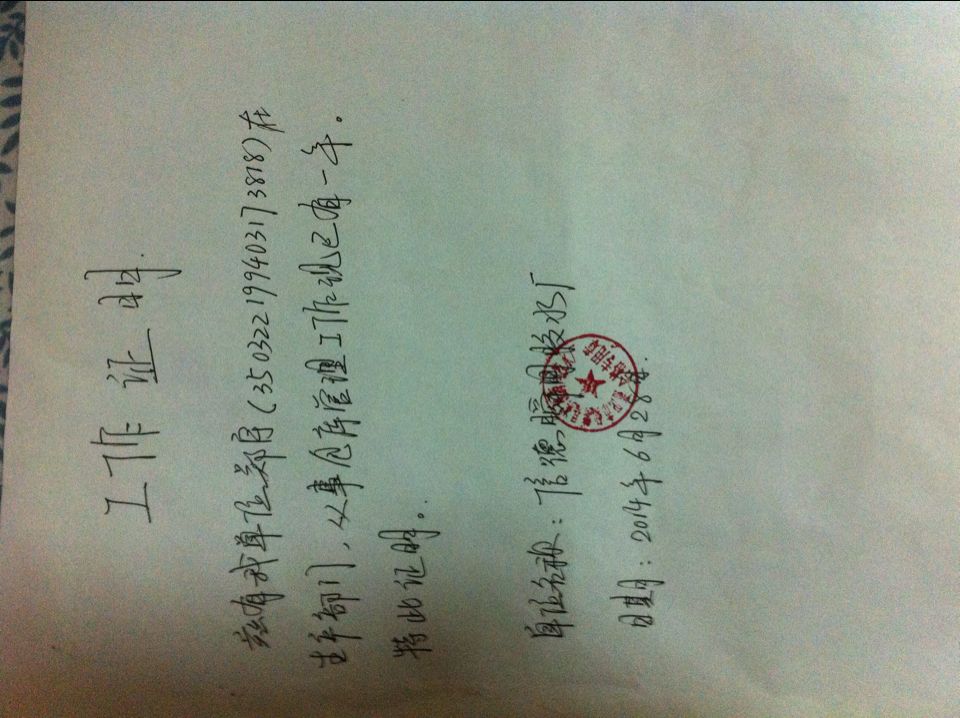 工作证明.
兹有我单位郑序(350322199403173818)在
生产部门,从事仓库管理工作现已有一年。
特此证明。
单位名称:信德
日期:2014年6月28
合格专用章